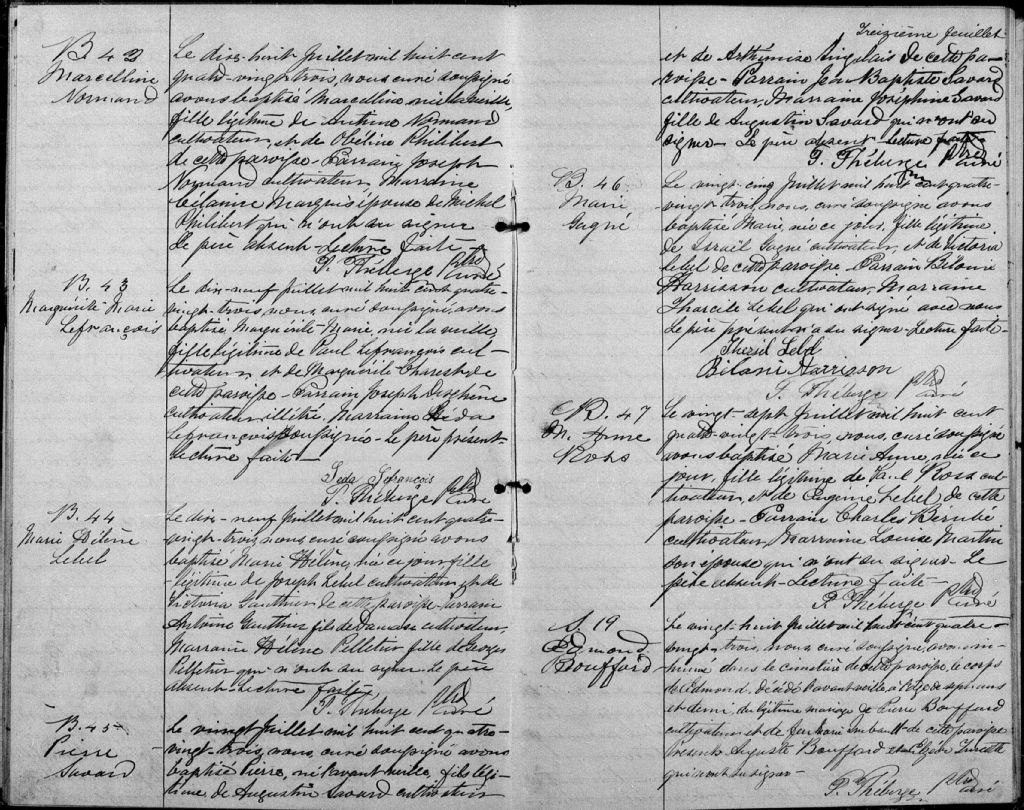 B. 42
Marcelline
Normand
Le dix-huit Juillet mil huit cent
quatre-vingt trois, nous curé soussigné
avons baptisé Marcelline née la veille,
fille légitime de Antoine Normand
cultivateur, et de Obéline Philibert
de cette paroisse - Parrain Joseph
Normand cultivateur, Marraine
Célanire Marquis épouse de Michel
Philibert qui n'ont su signer
Le père absent - Lecture faite -
P. Théberge Ptre Curé
B. 43
Marguerite Marie
Lefrançois
Le dix-neuf Juillet mil huit cent quatre-
vingt-trois, nous, curé soussigné, avons
baptisé Marguerite-Marie, née la veille
fille légitime de Paul Lefrançois cul-
tivateur, et de Marguerite Charest de
cette paroisse - Parrain Joseph Deschène
cultivateur illétré, Marraine Léda
Lefrançois soussignée - Le père présent -
Lecture faite
Leda Lefrançois
P. Théberge Ptre Curé
B. 44
Marie Hélène
Lebel
Le dix-neuf Juillet mil huit cent quatre-
vingt-trois, nous curé soussigné avons
baptisé Marie Hélène, née ce jour fille
légitime de Joseph Lebel cultivateur, et de
Victoria Gauthier de cette paroisse - Parrain
Antoine Gauthier fils de Damase cultivateur,
Marraine Hélène Pelletier fille de Georges
Pelletier qui n'ont su signer - Le père
absent - Lecture faite
P. Théberge Ptre Curé
B. 45
Pierre
Savard
Le vingt Juillet mil huit cent quatre
vingt-trois, nous, curé soussigné avons
baptisé Pierre, né l'avant veille, fils légi-
time de Augustin Savard cultivateur
Treizième feuillet
et de Arthémise Singelais de cette pa-
roisse - Parrain Jean Baptiste Savard
cultivateur, Marraine Joséphine Savard
fille de Augustin Savard qui n'ont su
signer - Le père absent - Lecture faite -
P. Théberge Ptre Curé
B. 46
Marie
Gagné
Le vingt-cinq Juillet mil huit cent quatre-
vingt-trois, nous, curé soussigné avons
baptisé Marie, née ce jour, fille légitime
de Israël Gagné cultivateur, et de Victoria
Lebel de cette paroisse - Parrain Bélonie
Harrisson cultivateur, Marraine
Tharcile Lebel qui ont signé avec nous
Le père présent n'a su signer - Lecture faite -
Lebel
Bélonie Harrisson
P. Théberge Ptre Curé
B. 47
M. Anne
Ross
Le vingt-sept Juillet mil huit cent
quatre-vingt-trois, nous, curé soussigné
avons baptisé Marie Anne, née ce
jour, fille légitime de Paul Ross cul-
tivateur, et de Eugénie Lebel de cette
paroisse - Parrain Charles Bérubé
cultivateur, Marraine Louise Martin
son épouse qui n'ont su signer - Le
père absent - Lecture faite -
P. Théberge Ptre Curé
S. 19
Edmond
Bouffard
Le vingt-huit Juillet mil huit cent quatre-
vingt-trois, nous curé soussigné, avons in-
humé dans le cimetière de cette paroisse, le corps
de Edmond, décédé l'avant veille à l'âge de sept ans
et demi, du légitime mariage de Pierre Bouffard
cultivateur et de Imbault de cette paroisse
Présents Auguste Bouffard et
qui n'ont su signer -
P. Théberge Ptre Curé